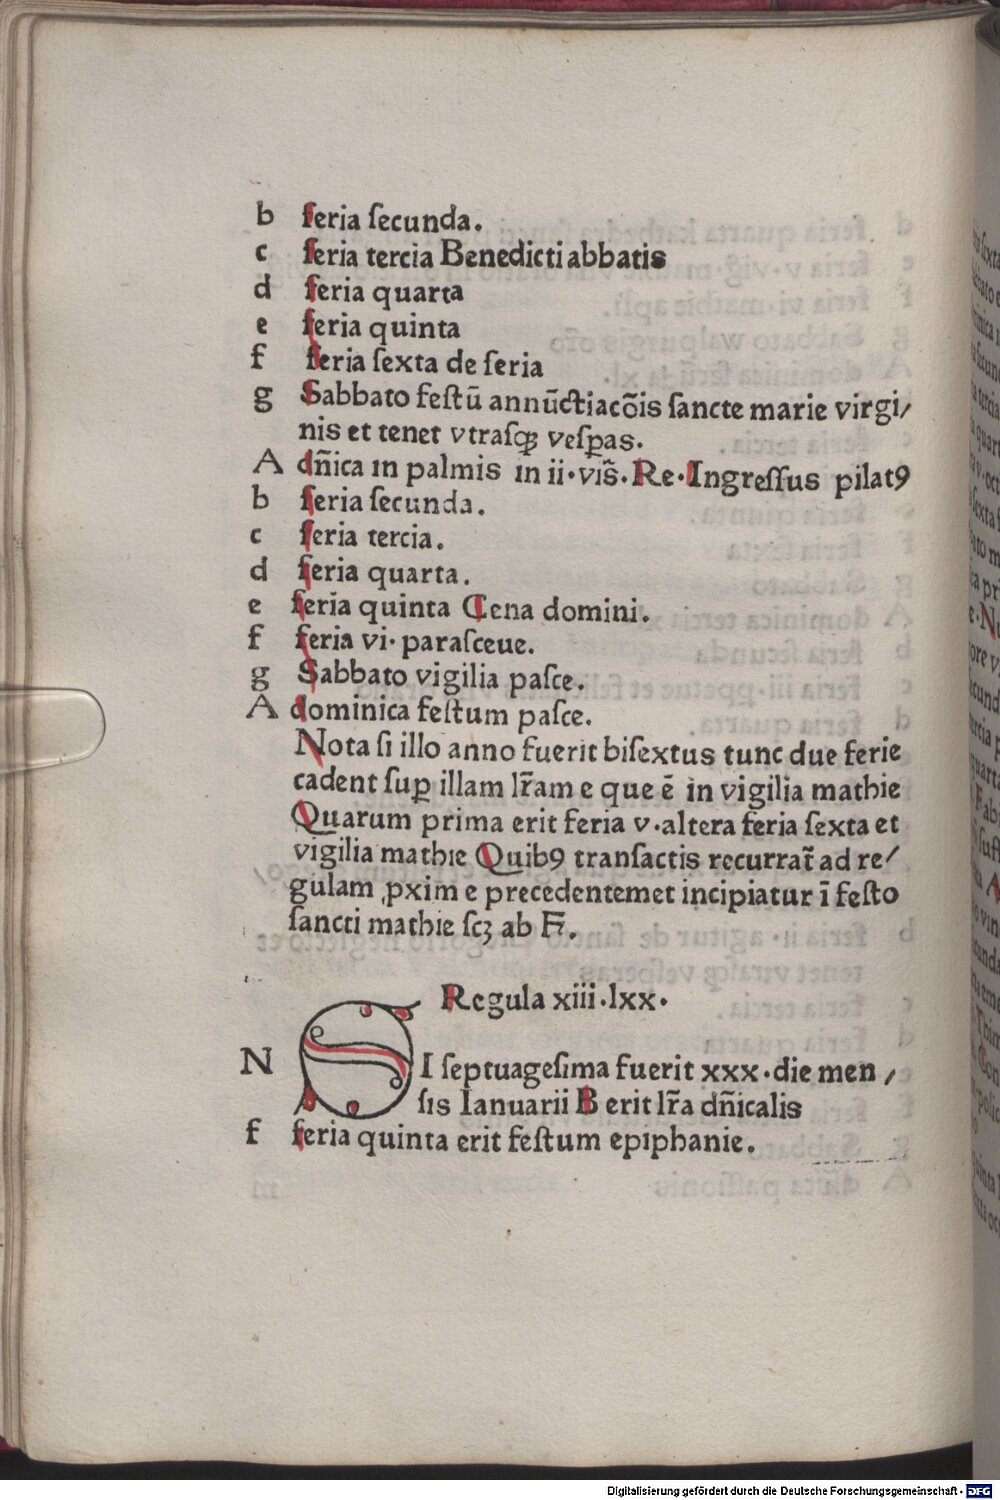 b feria ſecunda.
c feria tercia Benedicti abbatis
d feria quarta
e feria quinta
f feria ſexta de feria
g Sabbato feſtū annūctiacōis ſancte marie virgi/
nis et tenet vtraſqꝫ veſꝑas.
A dn̄ica in palmis in ii·viſ̄. Re·Ingreſſus pilatꝰ
b feria ſecunda.
c feria tercia.
d feria quarta.
e feria quinta Cena domini.
f feria vi· paraſceue.
g Sabbato vigilia paſce.
A dominica feſtum paſce.
Nota ſi illo anno fuerit biſextus tunc due ferie
cadent ſuꝑ illam lr̄am e que ē in vigilia mathie
Quarum prima erit feria v·altera feria ſexta et
vigilia mathie Quibꝰ tranſactis recurrat̄ ad re/
gulam ꝓxim e precedentemet incipiatur ī feſto
ſancti mathie ſcꝫ ab F.
Regula xiii·lxx·
N SI ſeptuageſima fuerit xxx·die men/
ſis Ianuarii B erit lr̄a dn̄icalis
f feria quinta erit feſtum epiphanie.
Digitalisierung gefördert durch die Deutsche Forschungsgemeinschaft · DFG